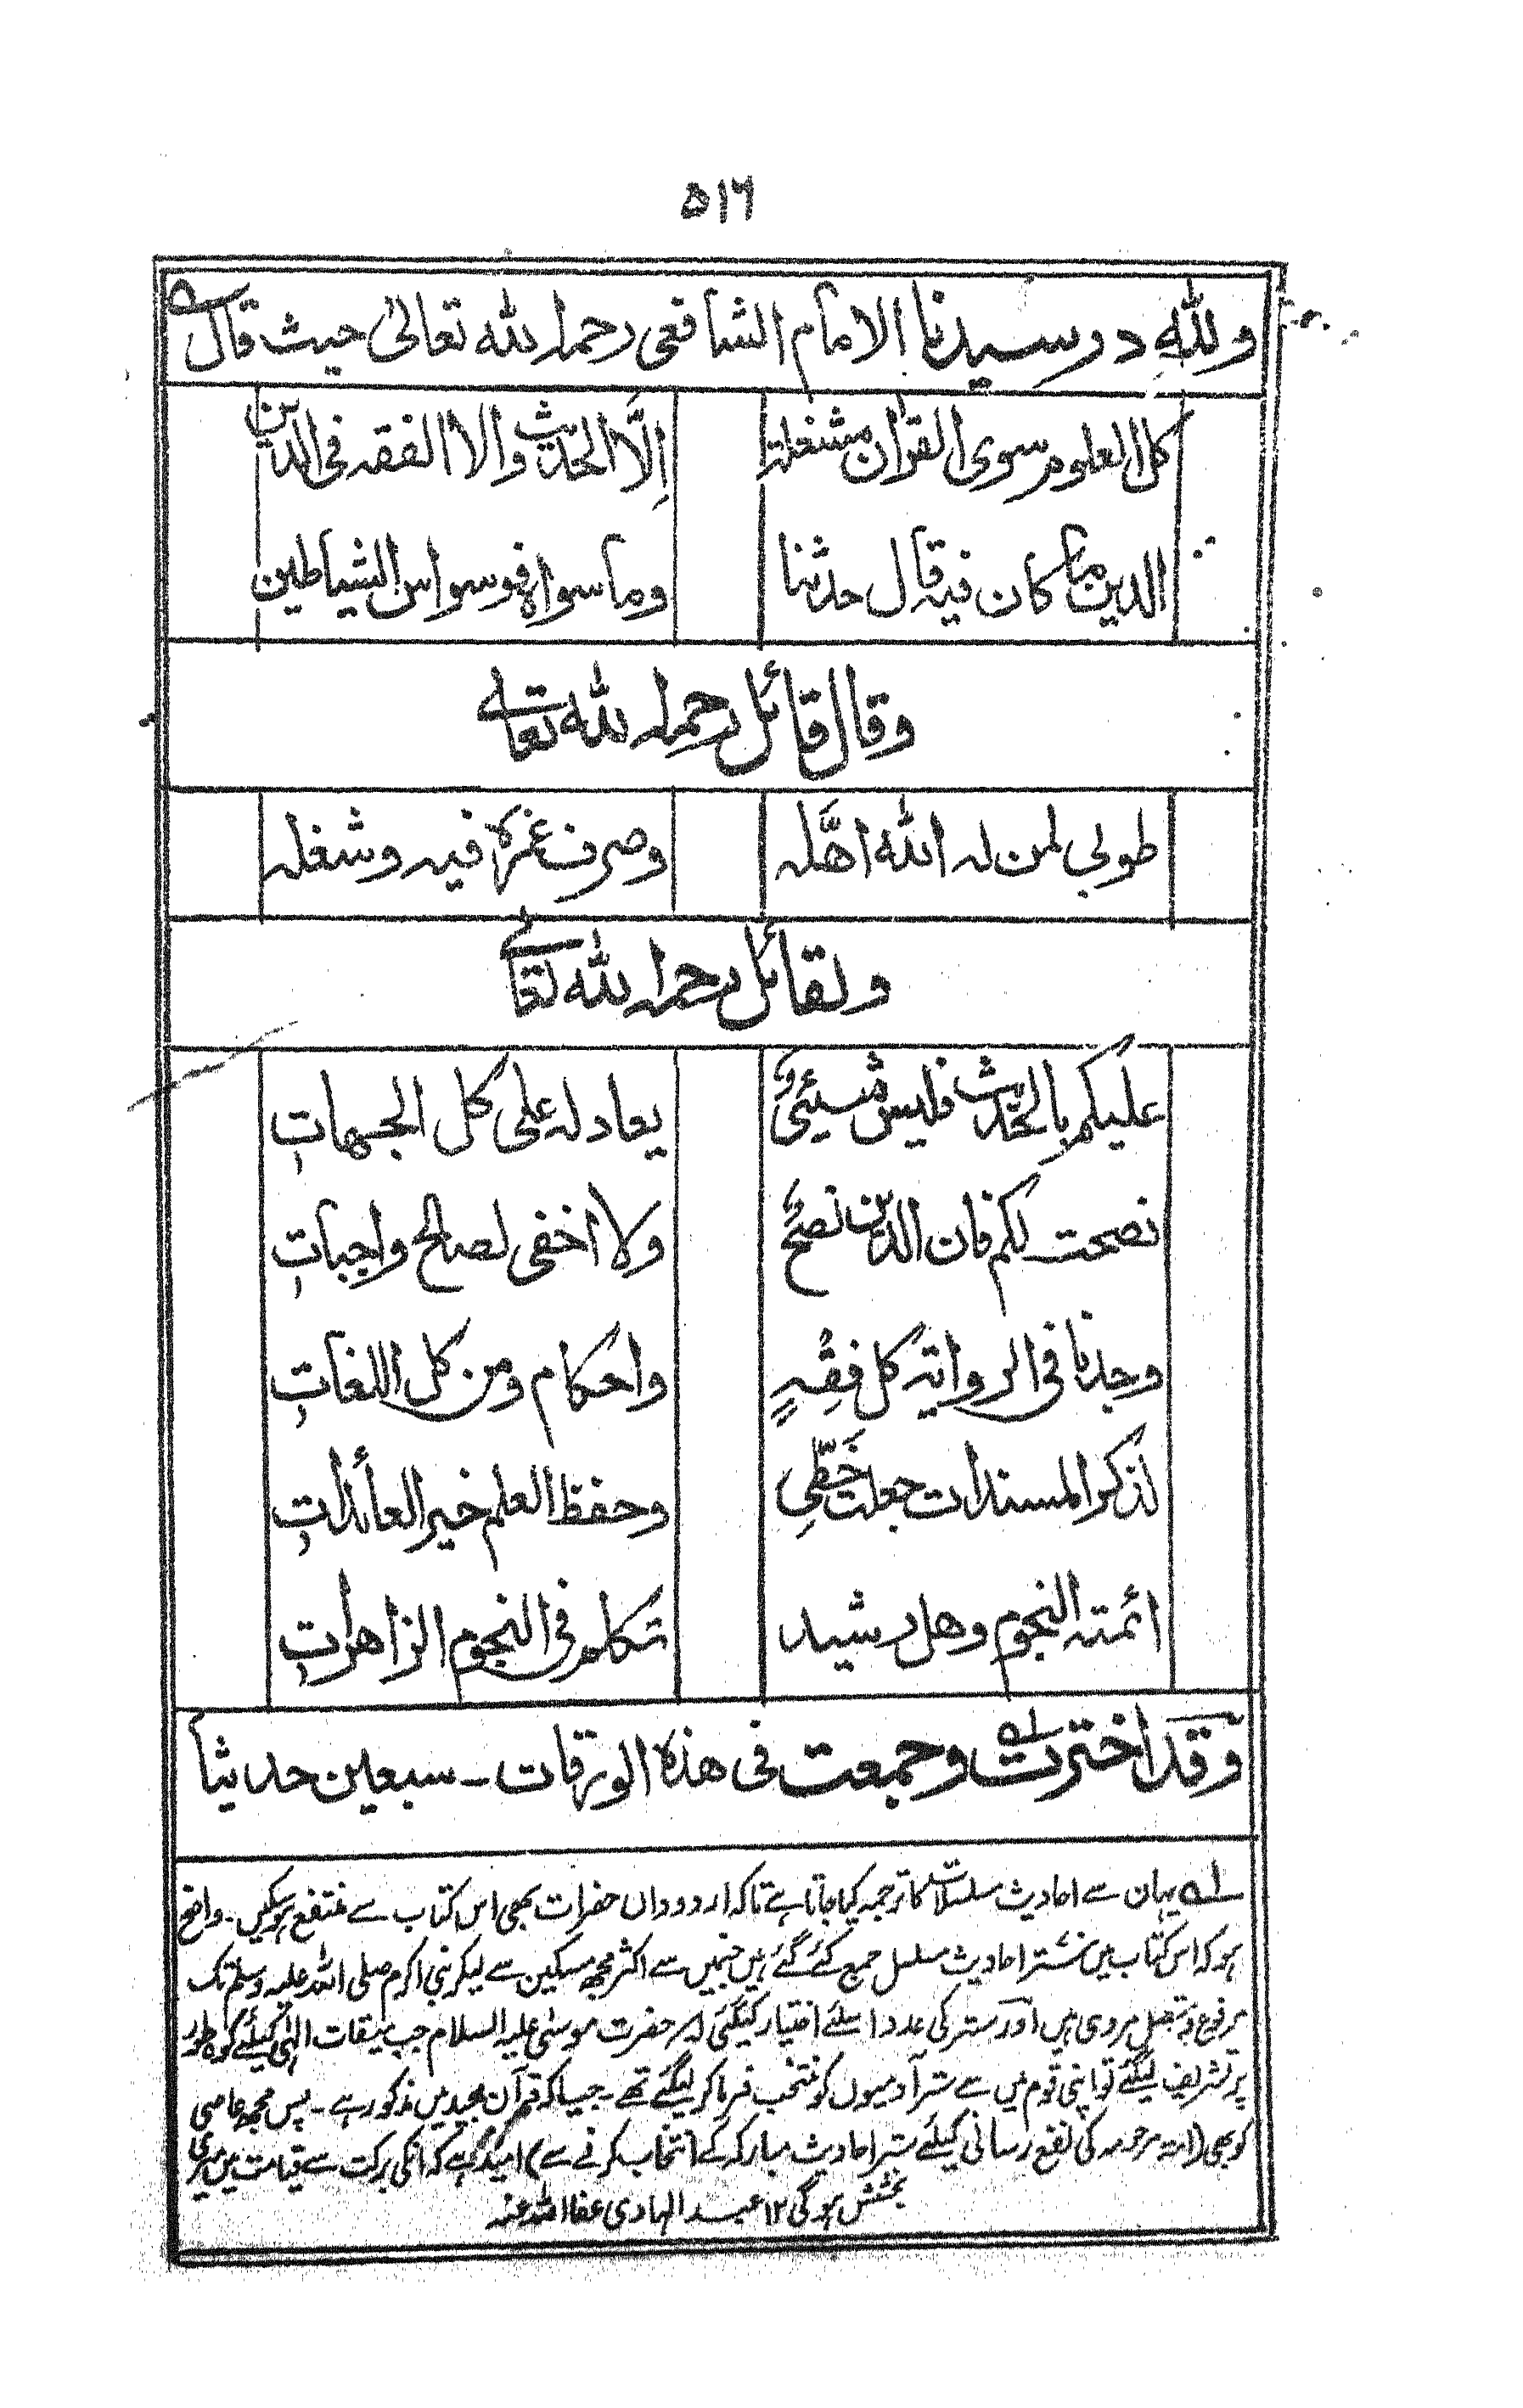 ۵۱۶
وللّٰهِ در سیدنا الامام الشافعی رحمہ اللّٰہ تعالیٰ حیث قال ے
کل العلوم سوی القران مشغلة اِلَّا الحدیث والا الفقہ فی الدین
الدین ما کان فیہ قال حدثنا وما سواہ فوسواس الشیاطین
وقال قائل رحمہ اللّٰہ تعالےٰ
طوبی لمن لہ اللّٰہ اھَّلہ وصرف عمرہ فیہ وشغلہ
ولقائل رحمہ اللّٰہ تعالےٰ
علیکم بالحدیث فلیس شیئیٌ یعادلہ علی کل الجهاتِ
نصحت لکم فان الدین نصحٌ ولا اخفی لصالح واجباتِ
وجدنا فی الروایة کل فِقہٍ واحکام ومن کل اللغاتِ
لذکر المسندات جعلت حَظّیِ وحفظ العلم خیر العائداتِ
ائمتہ النجوم وهل رشید تکلم فی النجوم الزاهراتِ
وقد اخترت لہ وجمعت فی هذہ الورقات ۔ سبعین حدیثاً
لہ یہان سے احادیث مسلسلات کا ترجمہ کیا جاتا ہے تاکہ اردو داں حضرات بھی اس کتاب سے منتفع ہوسکیں ۔ واضح
ہو کہ اس کتاب میں ستر احادیث مسلسل جمع کئے گئے ہیں جنمیں سے اکثر مجھ مسکین سے لیکر نبی اکرم صلی اللہ علیہ وسلم تک
مرفوع متصل مروی ہیں اور ستر کی عدد اسلئے اختیار کیگئی کہ حضرت موسٰی علیہ السلام جب میقات الٰہی کیلئے کوہ طور
پر تشریف لیگئے تو اپنی قوم میں سے ستر آدمیوں کو منتخب فرما کر لیگئے تھے ۔ جیسا کہ قرآن مجید میں مذکور ہے ۔ پس مجھ عاصی
کو بھی (امۃ مرحومہ کی نفع رسانی کیلئے ستر احادیث مبارکہ کے انتخاب کرنے سے) امید ہے کہ انکی برکت سے قیامت میں میری
بخشش ہوگی ۱۲ عبد الہادی عفا اللہ عنہ